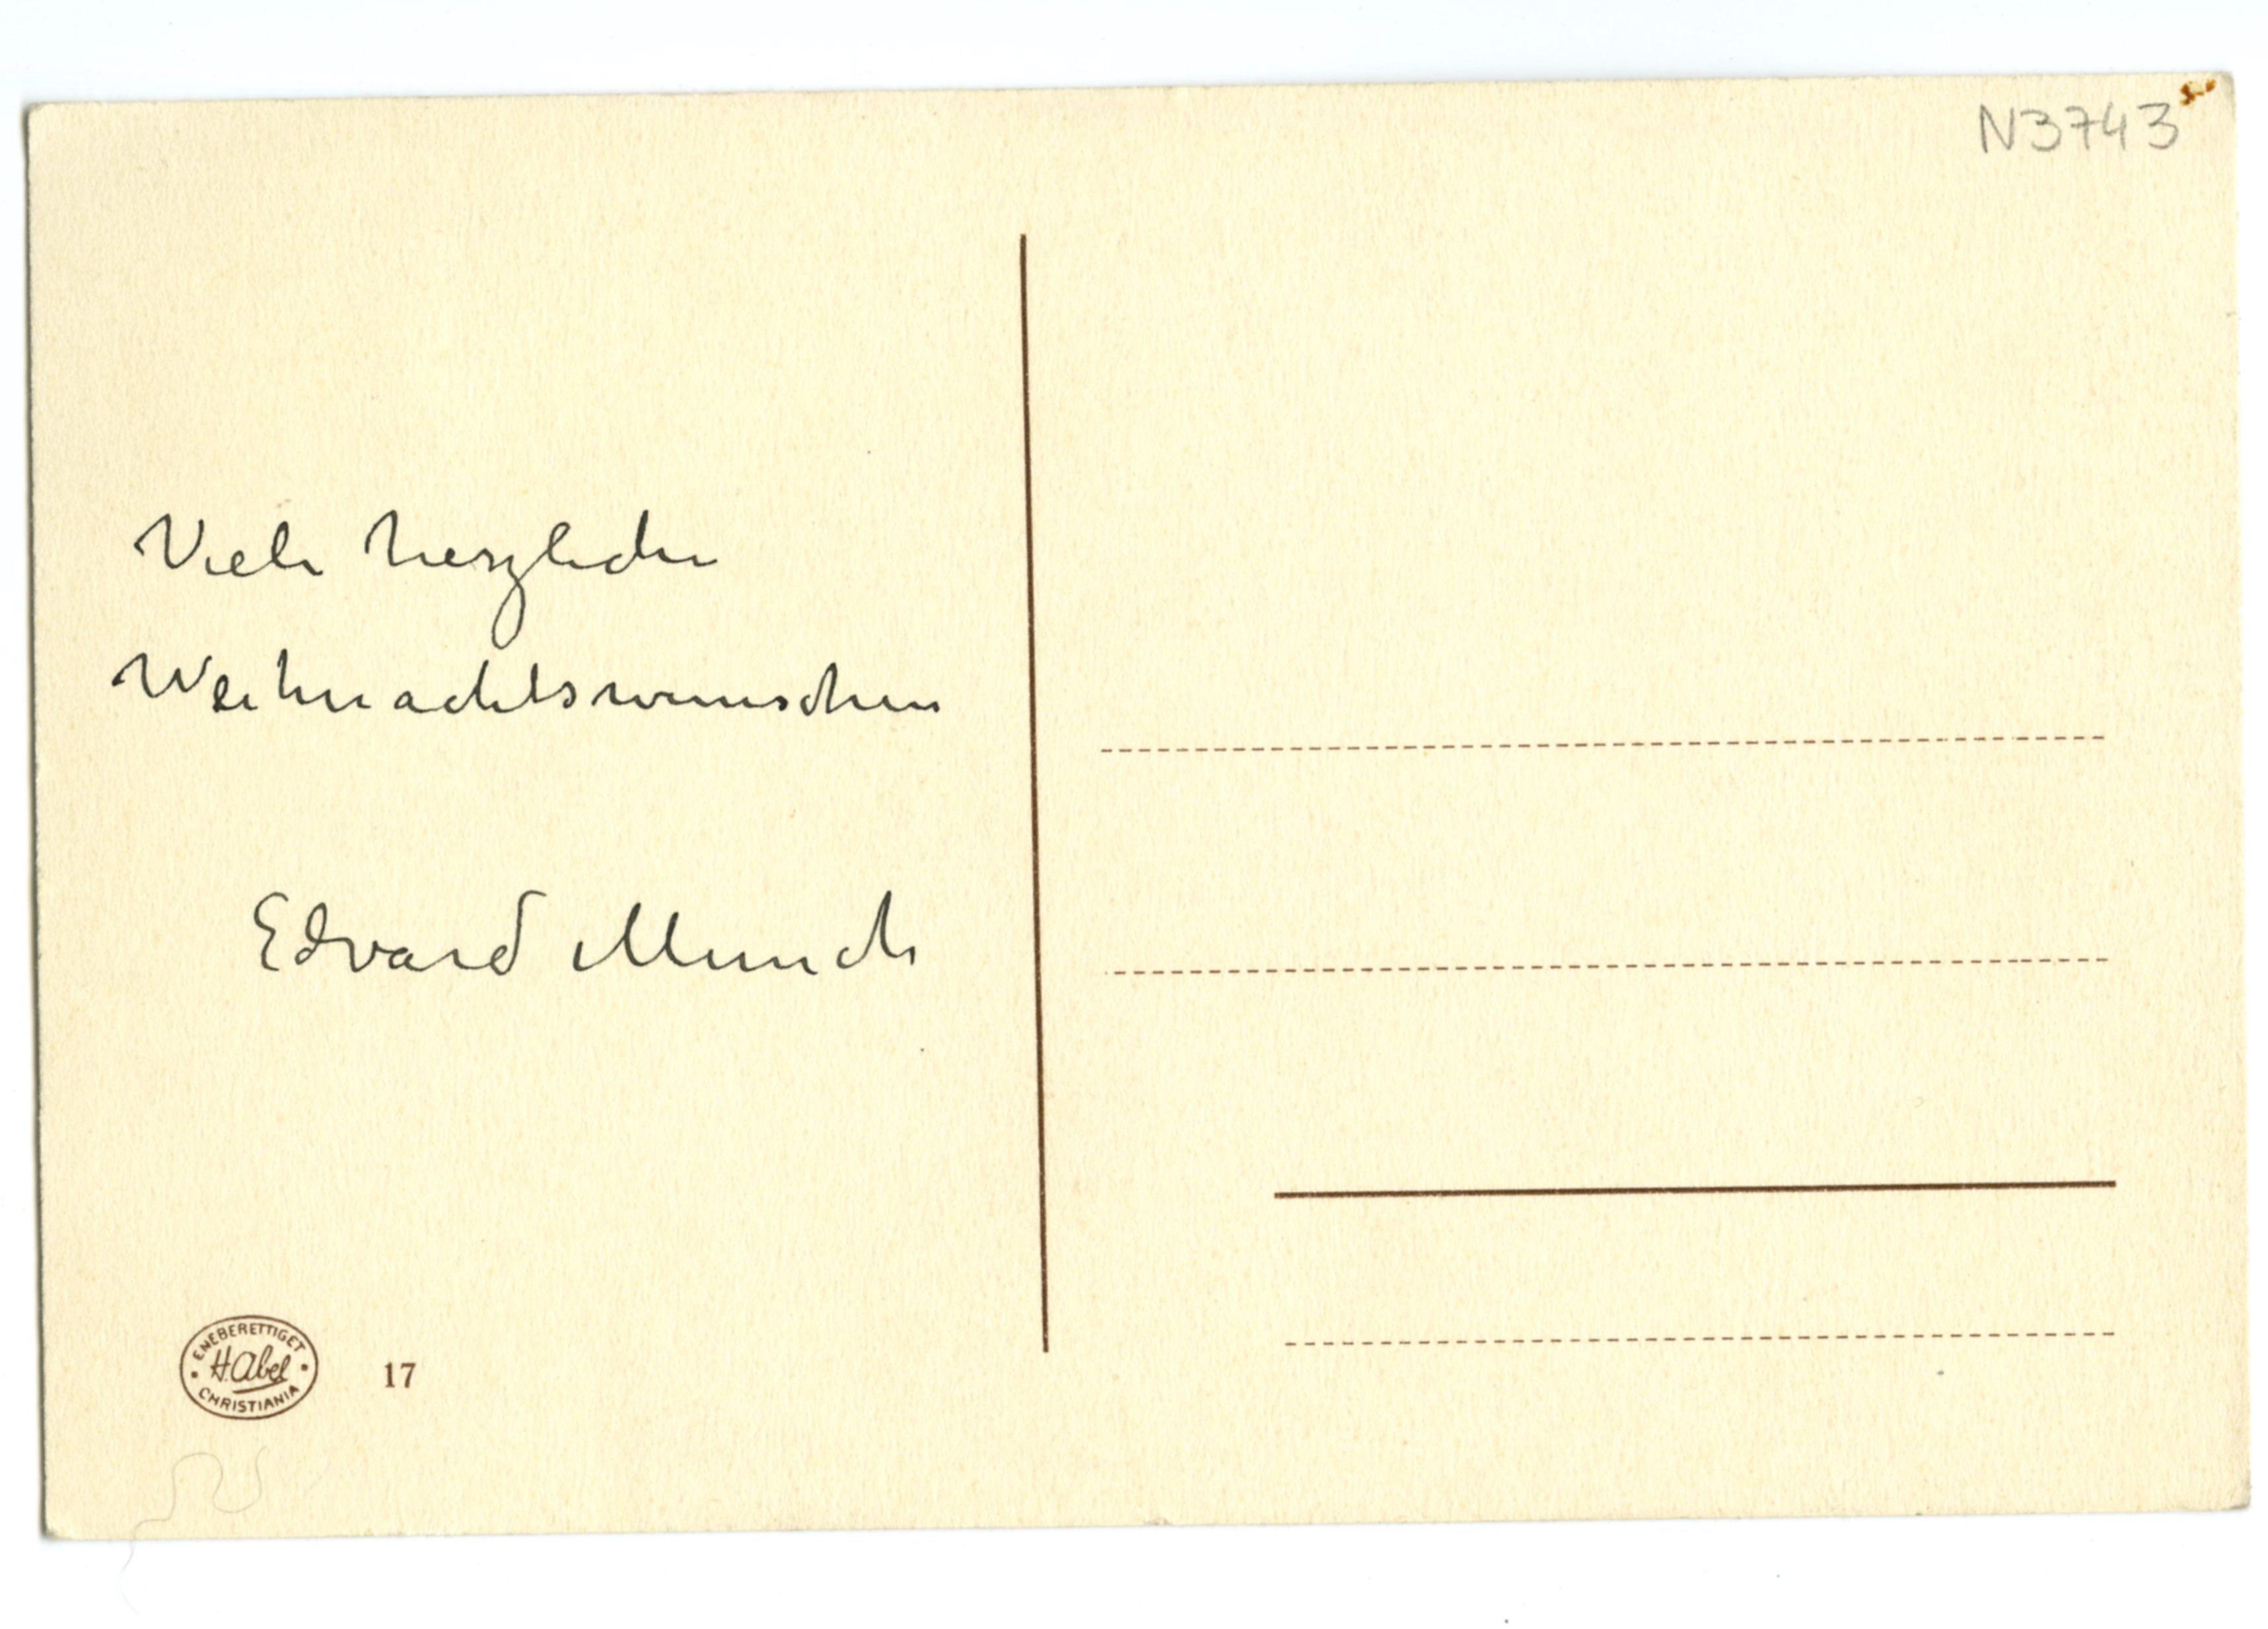 N3743
Viele herzliche
Weihnachtswunschen
Edvard Munch
ENEBERETTIGET
H. Abel
CHRISTIANIA
17